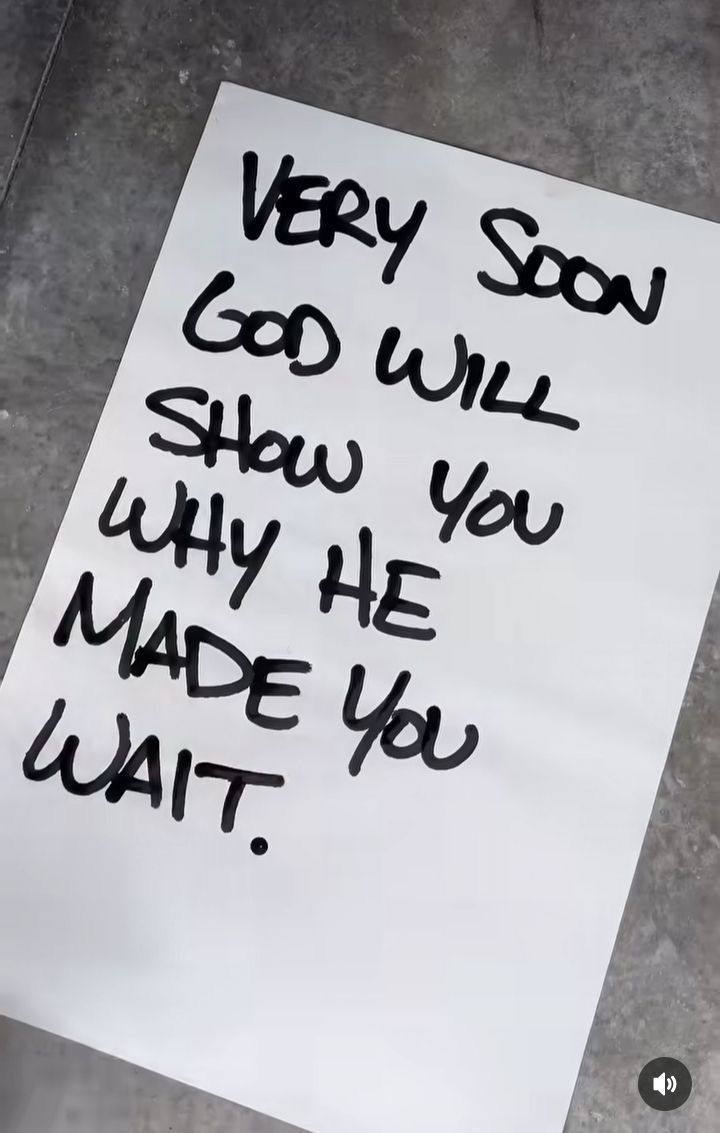 VERY SOON
GOD WILL
SHOW YOU
WHY HE
MADE YOU
WAIT.